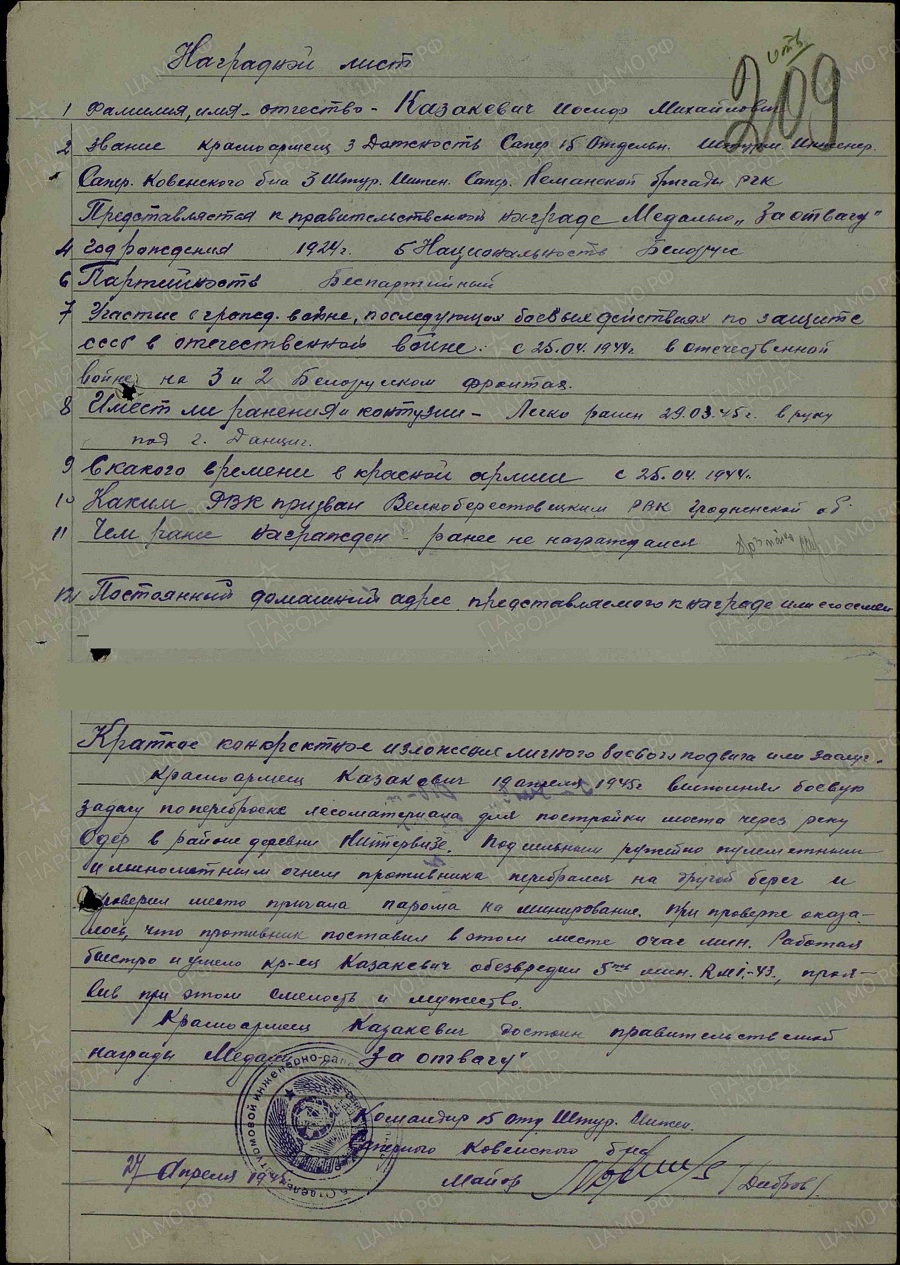 Наградной лист
209
1 Фамилия, имя - отчество - Казакевич Иосиф Михайлович
2 Звание красноармеец 3 Должность Сапер 15 Отдельн. Штурм. Инженер.
Сапер. Ковенского б-на 3 Штур. Инжен. Сапер. Неманской бригады РГК
Представляется к правительственной награде Медалью „За отвагу"
4 Год рождения 1924г. 5 Национальность Белорус
6 Партийность Беспартийный
7 Участие в гражд. войне, последующих боевых действиях по защите
СССР в отечественной войне: с 25.04.1944г. в отечественной
войне на 3 и 2 Белорусском фронтах.
8 Имеет ли ранения и контузии - Легко ранен 29.03.45г. в руку
под г. Данциг.
9 С какого времени в красной армии с 25.04.1944г.
10 Каким РВК призван Велкоберестовецким РВК Гродненской об.
11 Чем ранее награжден - ранее не награждался
12 Постоянный домашний адрес представляемого к награде или его семьи
Краткое конкретное изложение личного боевого подвига или заслуг.
Красноармеец Казакевич 19 апреля 1945г выполнял боевую
задачу по переброске лесоматериала для постройки моста через реку
Одер в районе деревни Нитервизе. Под сильным ружейно пулеметным
и минометным огнем противника перебрался на другой берег и
проверил место причала парома на минирование. При проверке оказа-
лось, что противник поставил в этом месте очаг мин. Работая
быстро и умело кр-ец Казакевич обезвредил 5 мин. RMi.-43, прояв-
вив при этом смелость и мужество.
Красноармеец Казакевич достоин правительственной
награды Медали „За отвагу"
Командир 15 отд. Штур. Инжен.
Саперного Ковенского б-на
27 Апреля 1945 Майор /Дибров/.